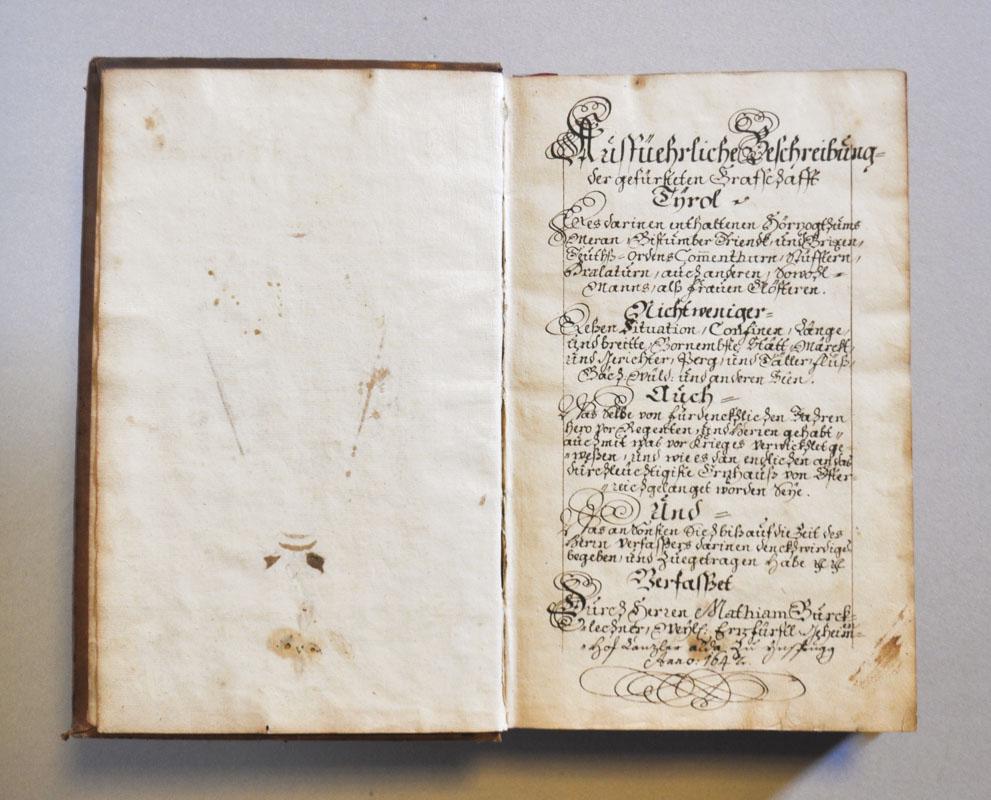 Ausfüehrliche Beschreibung
der gefürsteten Graffschafft
Tÿrol
Des darinen enthaltenen Hörzogthums
Meran, Bistumber Triendt, und Brixen,
Teütsch-Ordens Comenthurn, Stüfftern,
Prælaturn, auch anderen, Sowohl-
Manns, alß frauen Clösteren.
Nicht weniger-
Deßen Situation, Confinen, Länge,
und breitte, Vornembste Stätt, Märckt,
und Gerichter, Berg, und Tätter, fluß,
Bäch, Wüld: und anderen Seen.
Auch
Was Selbe von fürdencklichen Jahren
hero vor Regenten, und Herren gehabt,
auch mit was vor Krieges verwicklet ge-
weßen, und wie es dan endlichen an das
durchleüchtigiste Ertzhauß von Öster-
reich gelanget worden Seÿe.
Und
Was ansonsten Sich biß auf die Zeit des
Herrn Verfaßers darinen denckwirdiges
begeben, und Zuegetragen habe
Verfasset
Durch Herren Mathiam Burck-
Lechner, Weÿl: Ertzfürstl Geheim-
Hof Canzler alda Zu Ynßprugg
Anno: 164